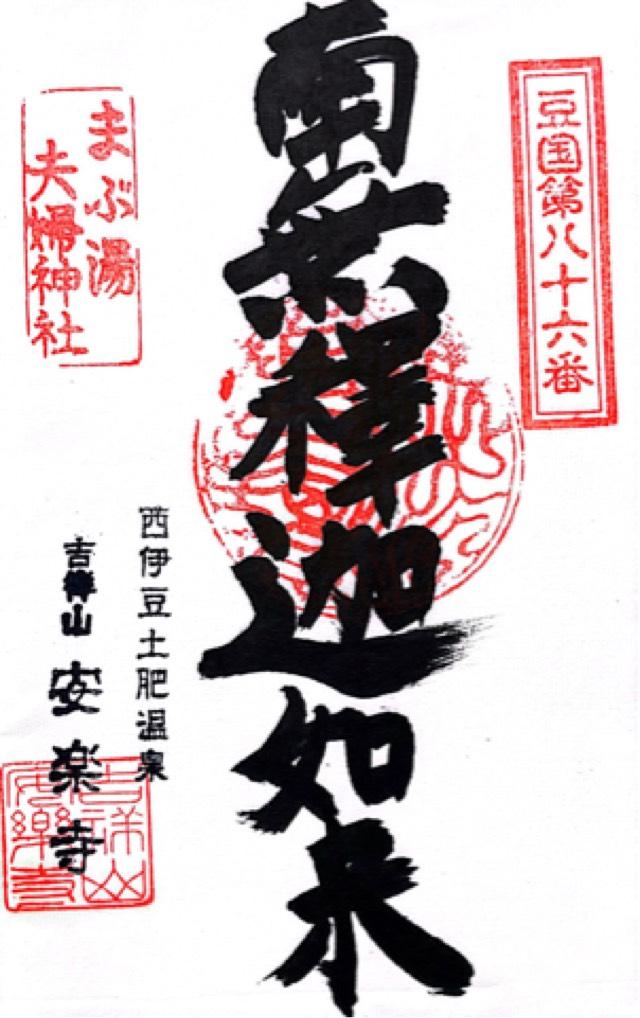 豆国第八十六番
南無釋迦如来
まぶ湯
夫婦神社
西伊豆土肥温泉
吉祥山 安楽寺
吉祥山
安樂寺